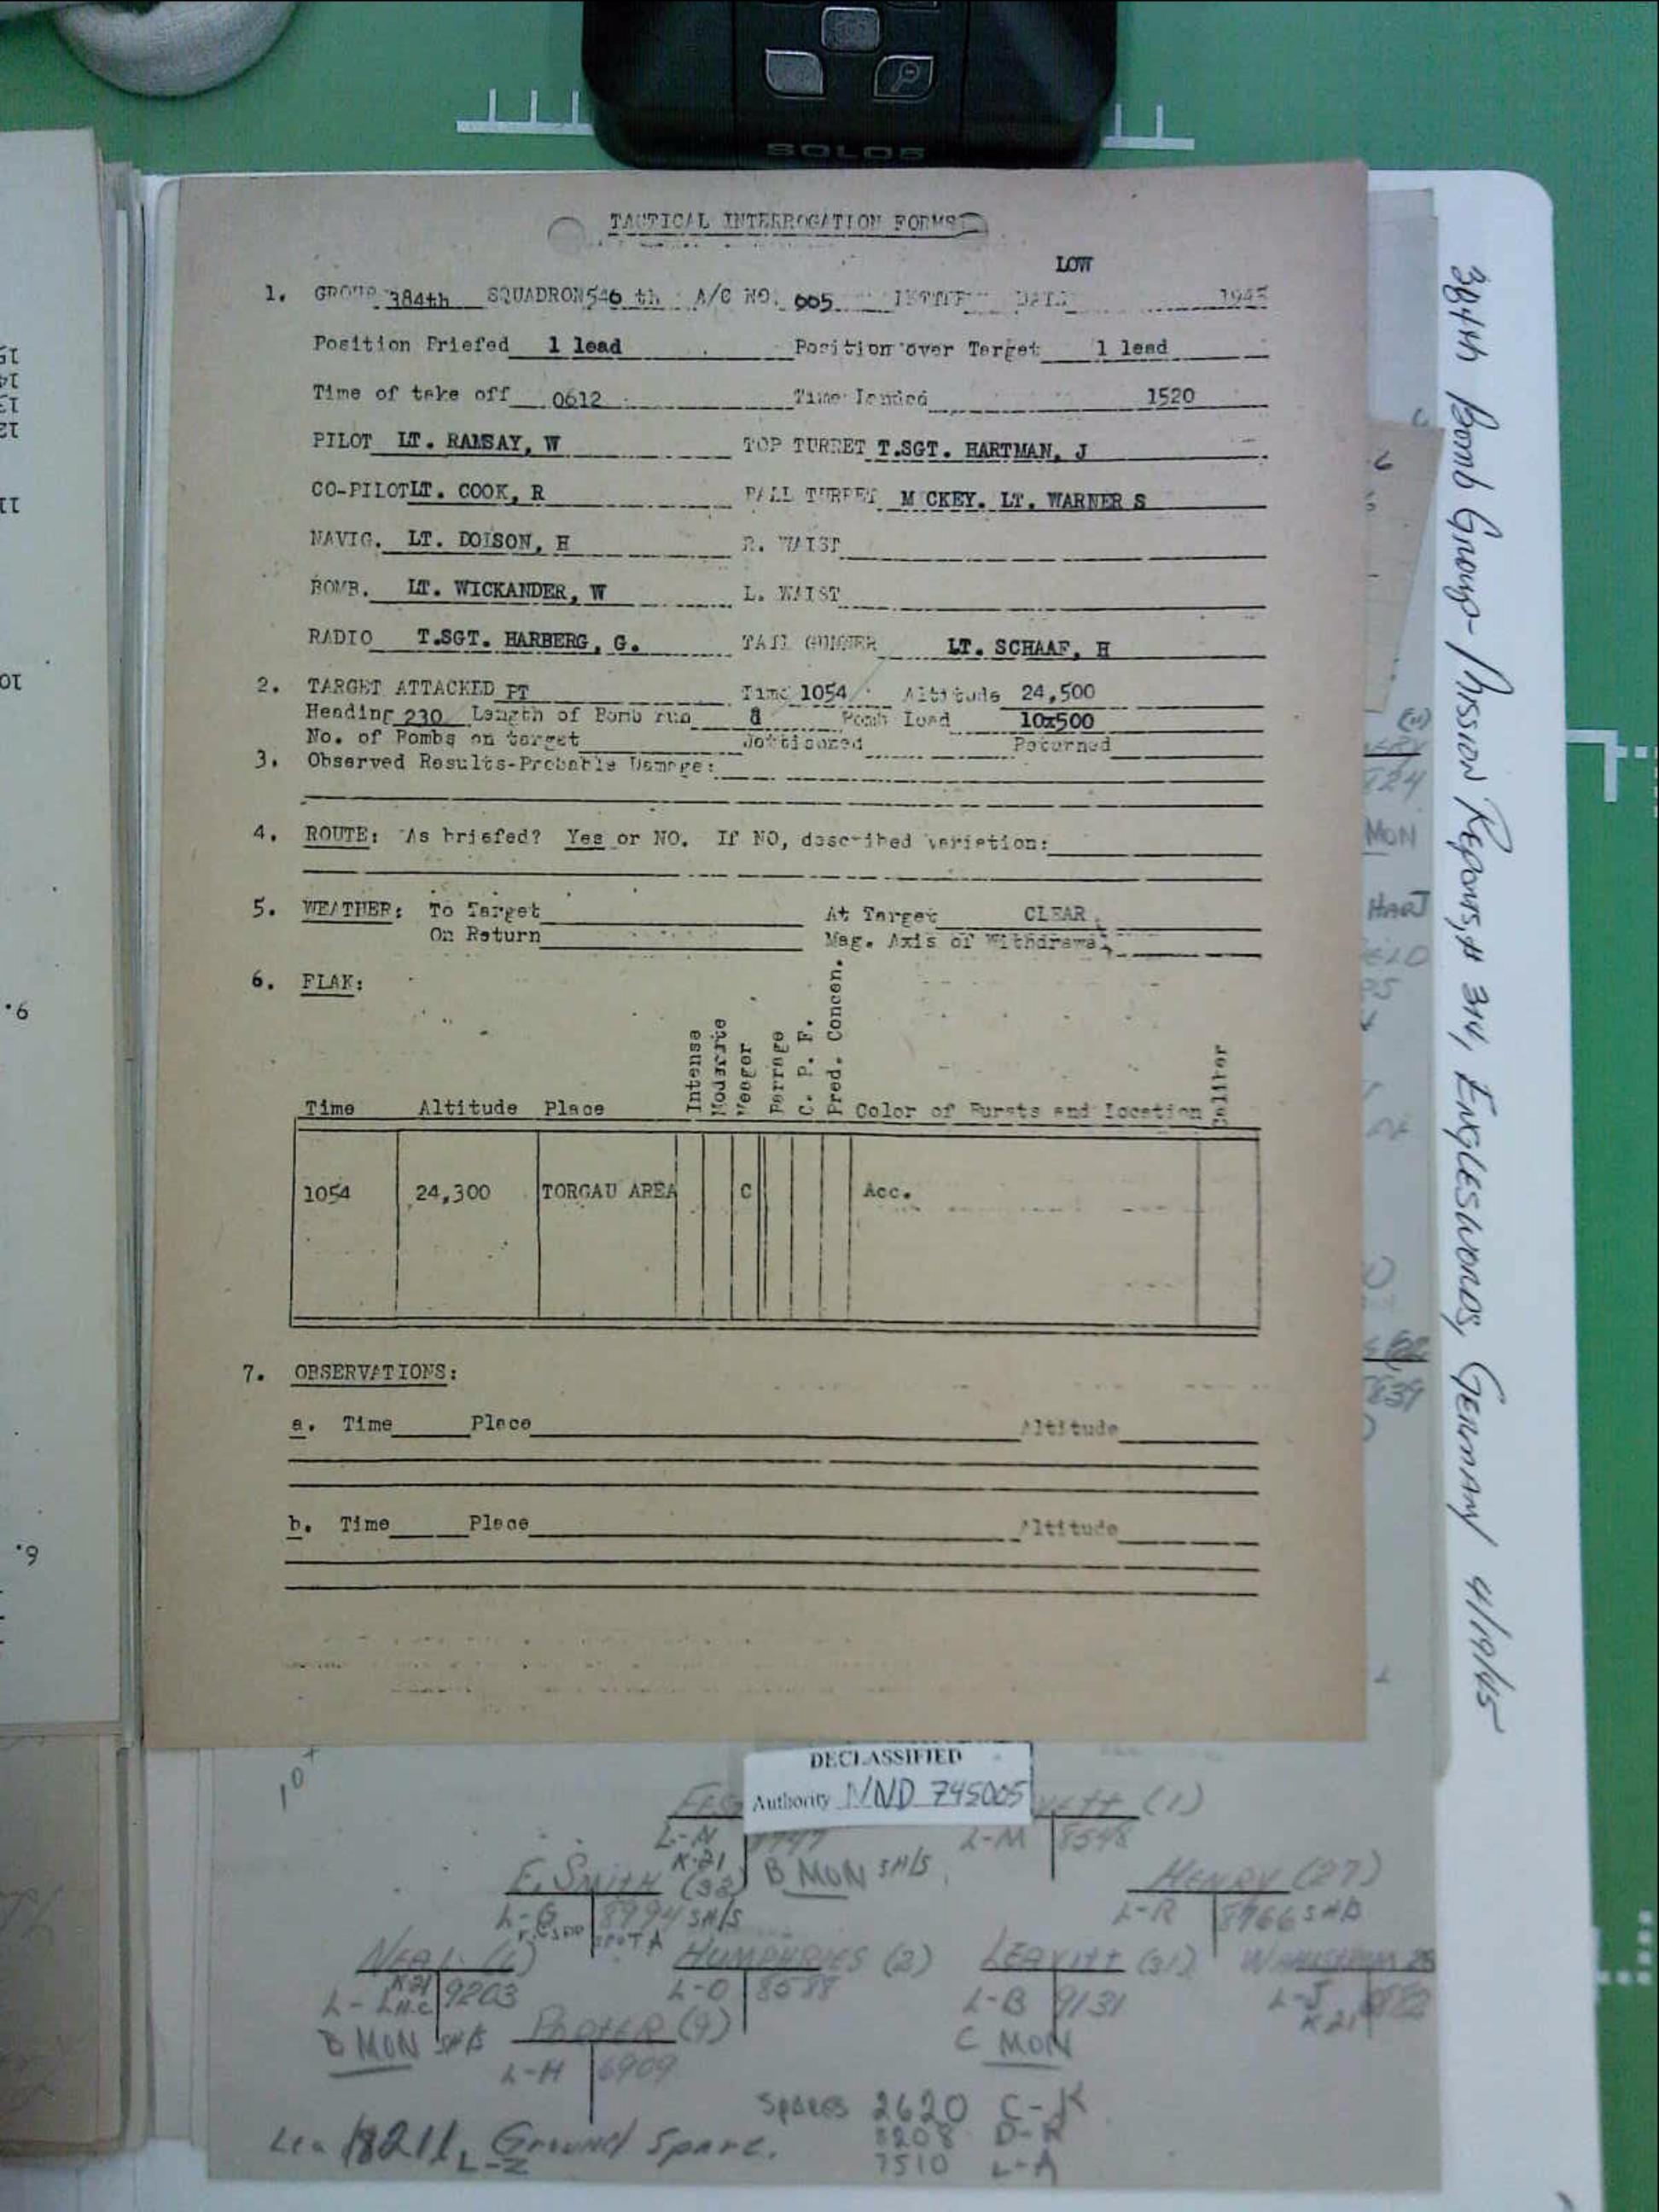 SOLOS
TACTICAL INTERROGATION FORMS
LOW
1. GROUP 384th SQUADRON 546 th A/C NO. 665 LETTER DATE 1945
Position Briefed 1 lead Position over Target 1 lead
Time of take off 0612 Time Landed 1520
PILOT LT. RAMSAY, W TOP TURRET T.SGT. HARTMAN, J
CO-PILOT LT. COOK, R BALL TURRET M CKEY. LT. WARNER S
NAVIG. LT. DOISON, H R. WAIST
BOMB. LT. WICKANDER, W L. WAIST
RADIO T.SGT. HARBERG, G. TAIL GUNNER LT. SCHAAF, H
2. TARGET ATTACKED PT Time 1054 Altitude 24,500
Heading 230 Length of Bomb run 8 Bomb Load 10x500
No. of Bombs on target Jettisoned Returned
3. Observed Results-Probable Damage:
4. ROUTE: As briefed? Yes or NO. If NO, described variation:
5. WEATHER: To Target At Target CLEAR
On Return Mag. Axis of Withdrawal
6. FLAK:
Time Altitude Place Intense Moderate Meager Barrage C. P. F. Pred. Concen. Color of Bursts and Location Caliber
1054 24,300 TORGAU AREA C Acc.
7. OBSERVATIONS:
a. Time Place Altitude
b. Time Place Altitude
384th Bomb Group-Mission Reports, # 314, Englesworos, Germany 4/19/45
DECLASSIFIED
Authority NND 745005
(1)
L-N L-M 8548
K-21 B MON SH/S
E. SMITH (32) HENRY (27)
L-G 8994 SH/S L-R 8966 SHB
SPOT A
NEAL HUMPHRIES (2) LEAVITT (31)
K21 9203 L-O 8588 L-B 9131 L-J
K21
B MON PORTER (9) C MON
L-H 6909
Spares 2620 C-K
8211 Ground Spare. 8208 D-R
L-Z 7510 L-A
(11)
924
MON
HART